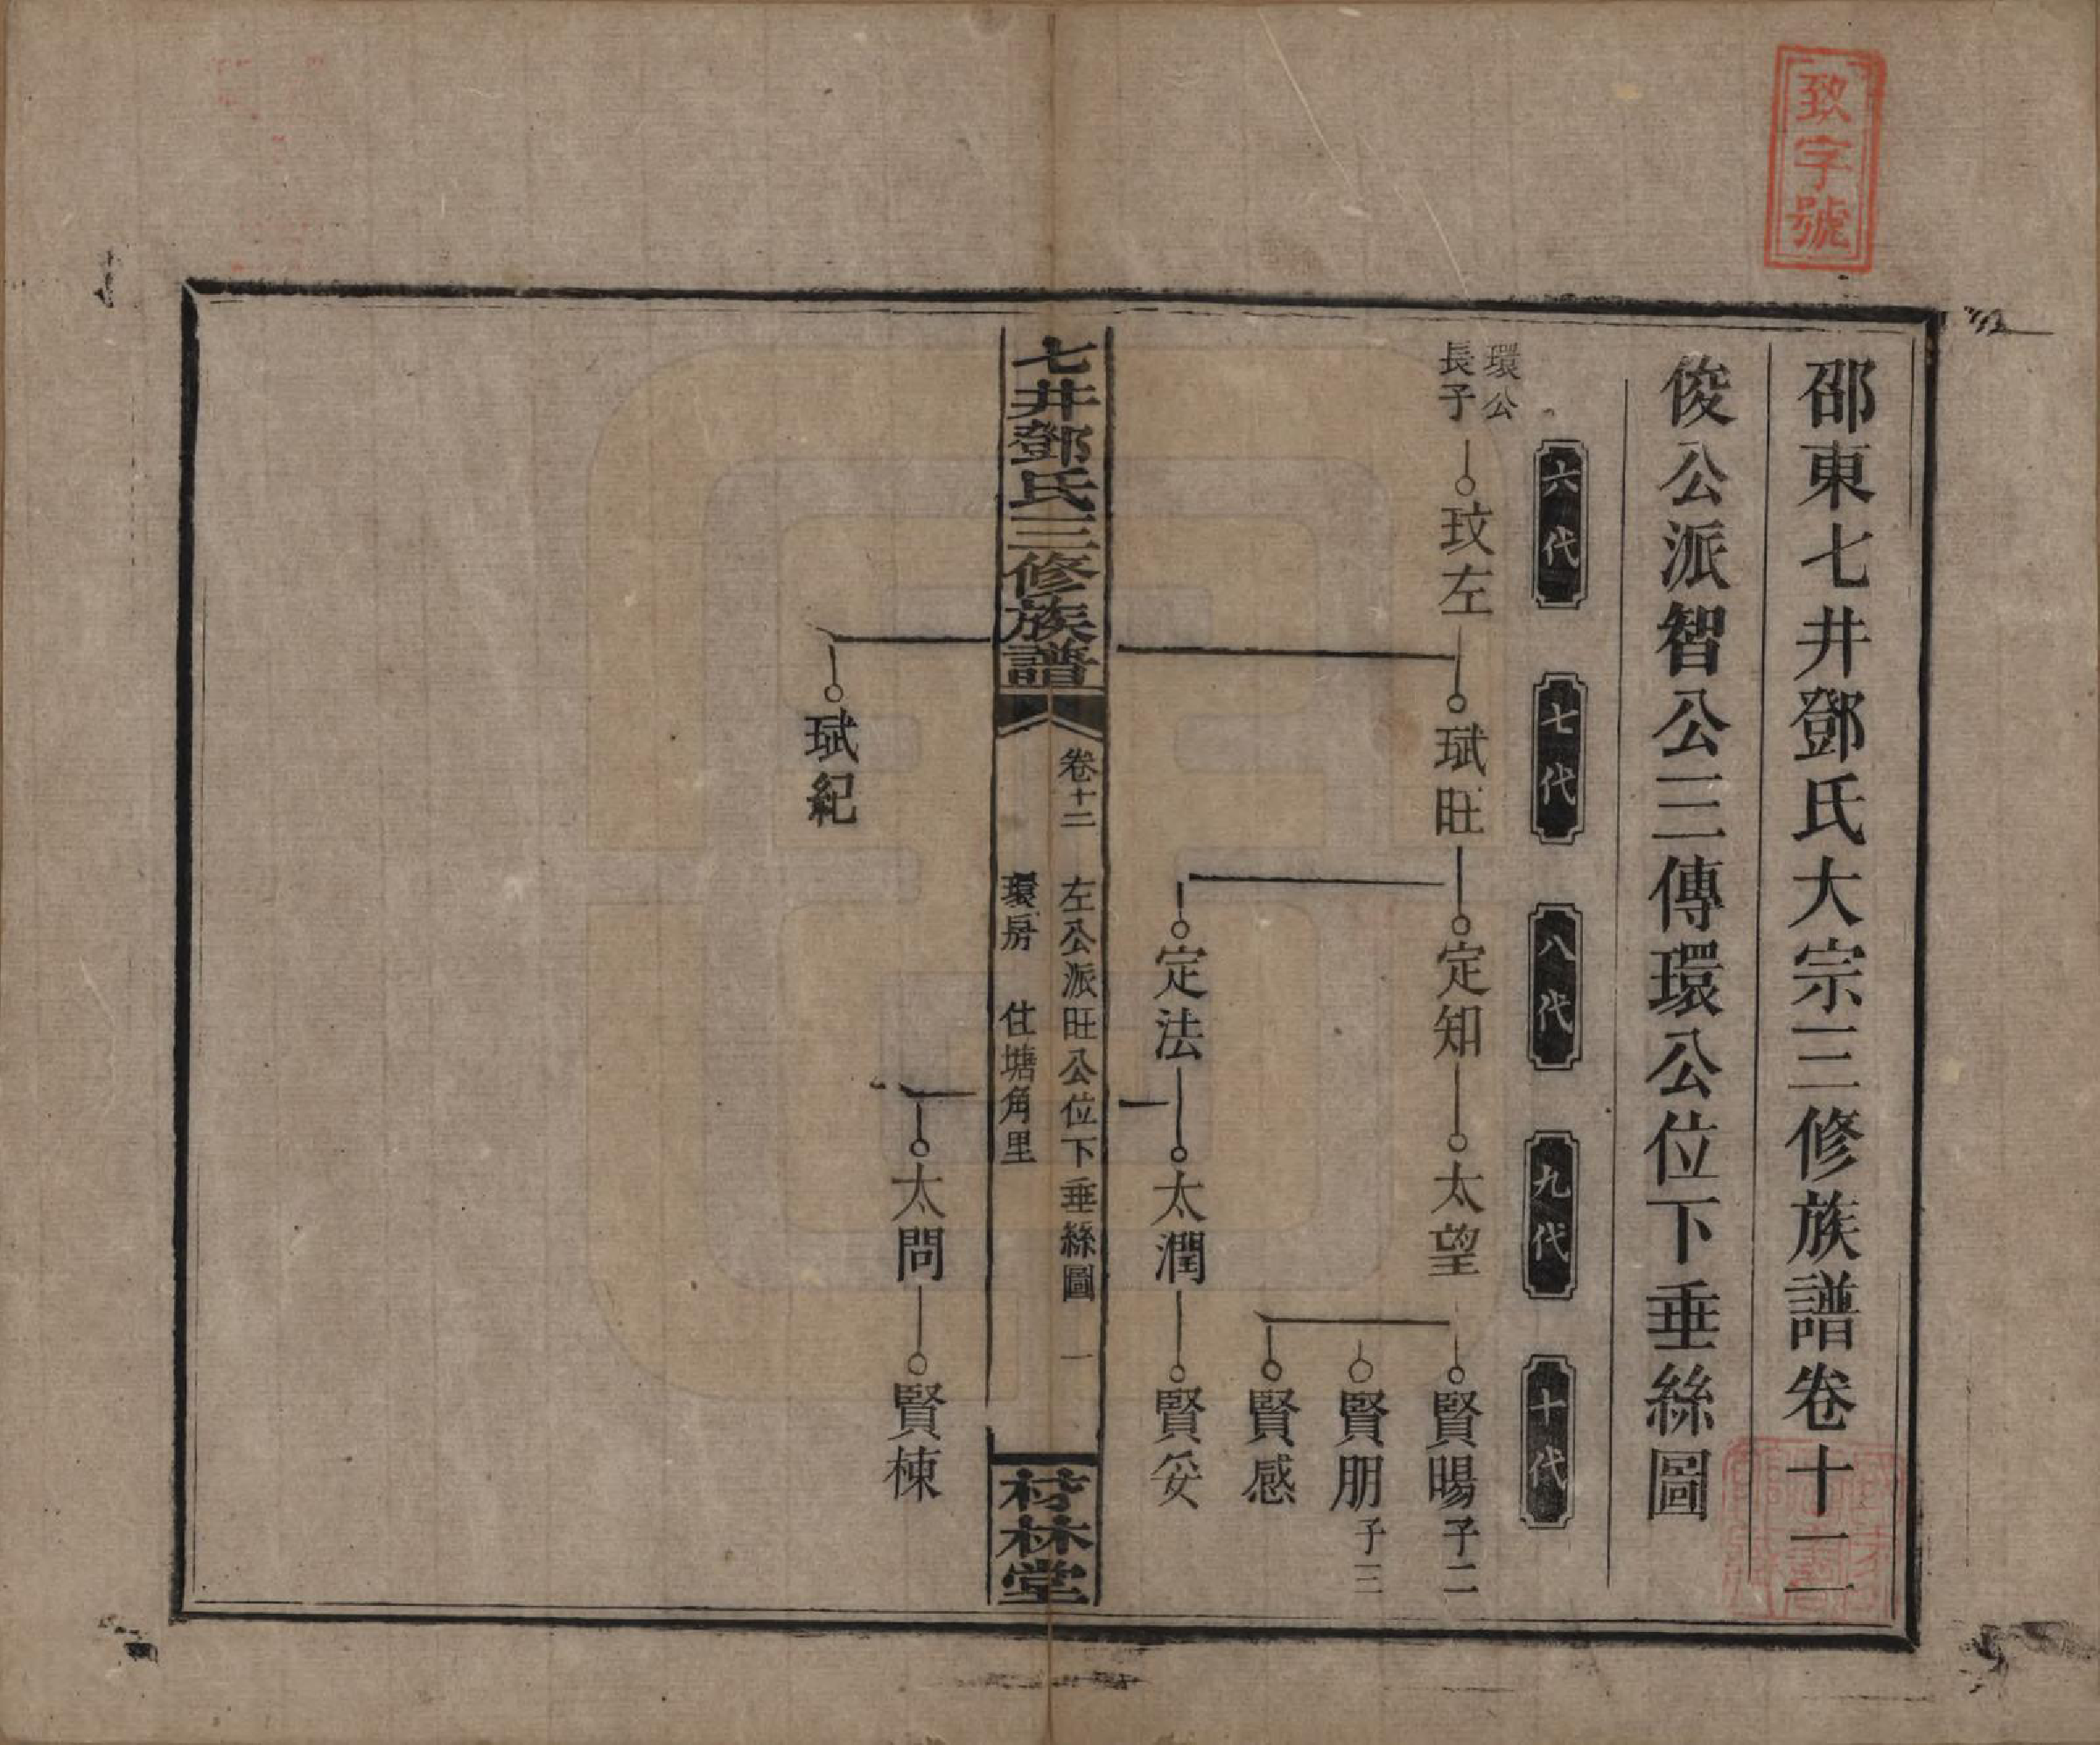 致字號
邵東七井鄧氏大宗三修族譜卷十二
俊公派智公三傳環公位下垂絲圖
六代
七代
八代
九代
十代
環公
長子
玟左
珷旺
定知
太望
賢暘子二
賢朋子三
賢感
定法
太潤
賢妥
七井鄧氏三修族譜
卷十二
左公派旺公位下垂絲圖
一
環房
住塘角里
林堂
珷紀
太問
賢棟